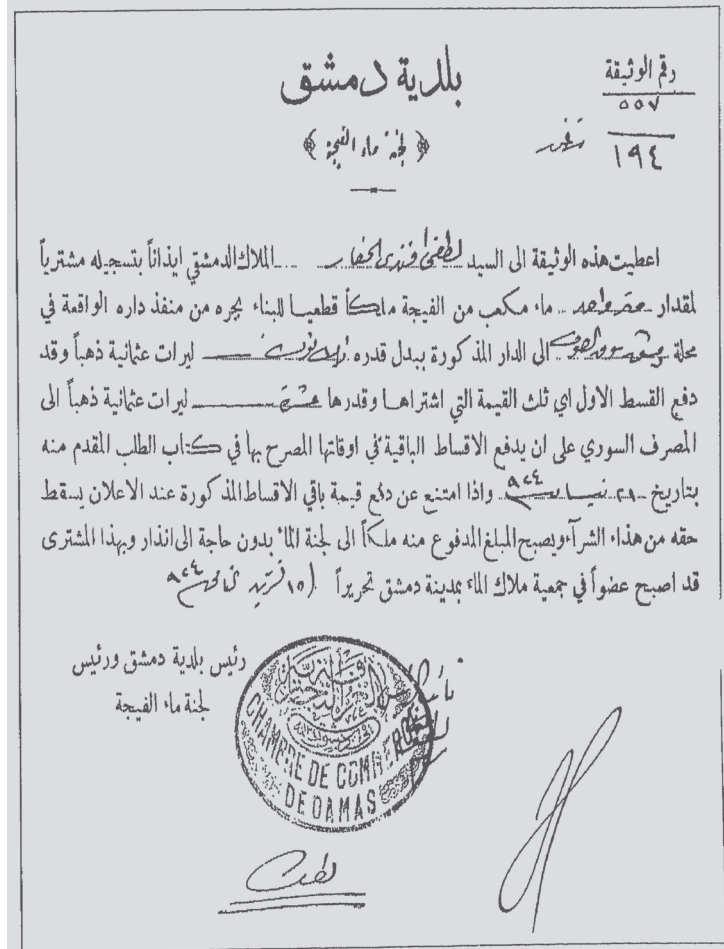 رقم الوثيقة
٥٥٧
١٩٤
بلدية دمشق
﴿ لجنة ماء الفيجة ﴾
اعطيت هذه الوثيقة الى السيد لطفي افندي الحفار الملاك الدمشقي ايذاناً بتسجيله مشترياً
لمقدار ماء مكعب من الفيجة ملكاً قطعيا للبناء يجره من منفذ داره الواقعة في
محلة الى الدار المذكورة ببدل قدره ليرات عثمانية ذهباً وقد
دفع القسط الاول اي ثلث القيمة التي اشتراها وقدرها ليرات عثمانية ذهباً الى
المصرف السوري على ان يدفع الاقساط الباقية في اوقاتها المصرح بها في كتاب الطلب المقدم منه
بتاريخ نيسان ٩٢٤ واذا امتنع عن دفع قيمة باقي الاقساط المذكورة عند الاعلان يسقط
حقه من هذاء الشرآء ويصبح المبلغ المدفوع منه ملكاً الى لجنة الماء بدون حاجة الى انذار وبهذا المشترى
قد اصبح عضواً في جمعية ملاك الماء بمدينة دمشق تحريراً ١٥ تشرين ٩٢٤
رئيس بلدية دمشق ورئيس
لجنة ماء الفيجة
CHAMBRE DE COMMERCE
DE DAMAS